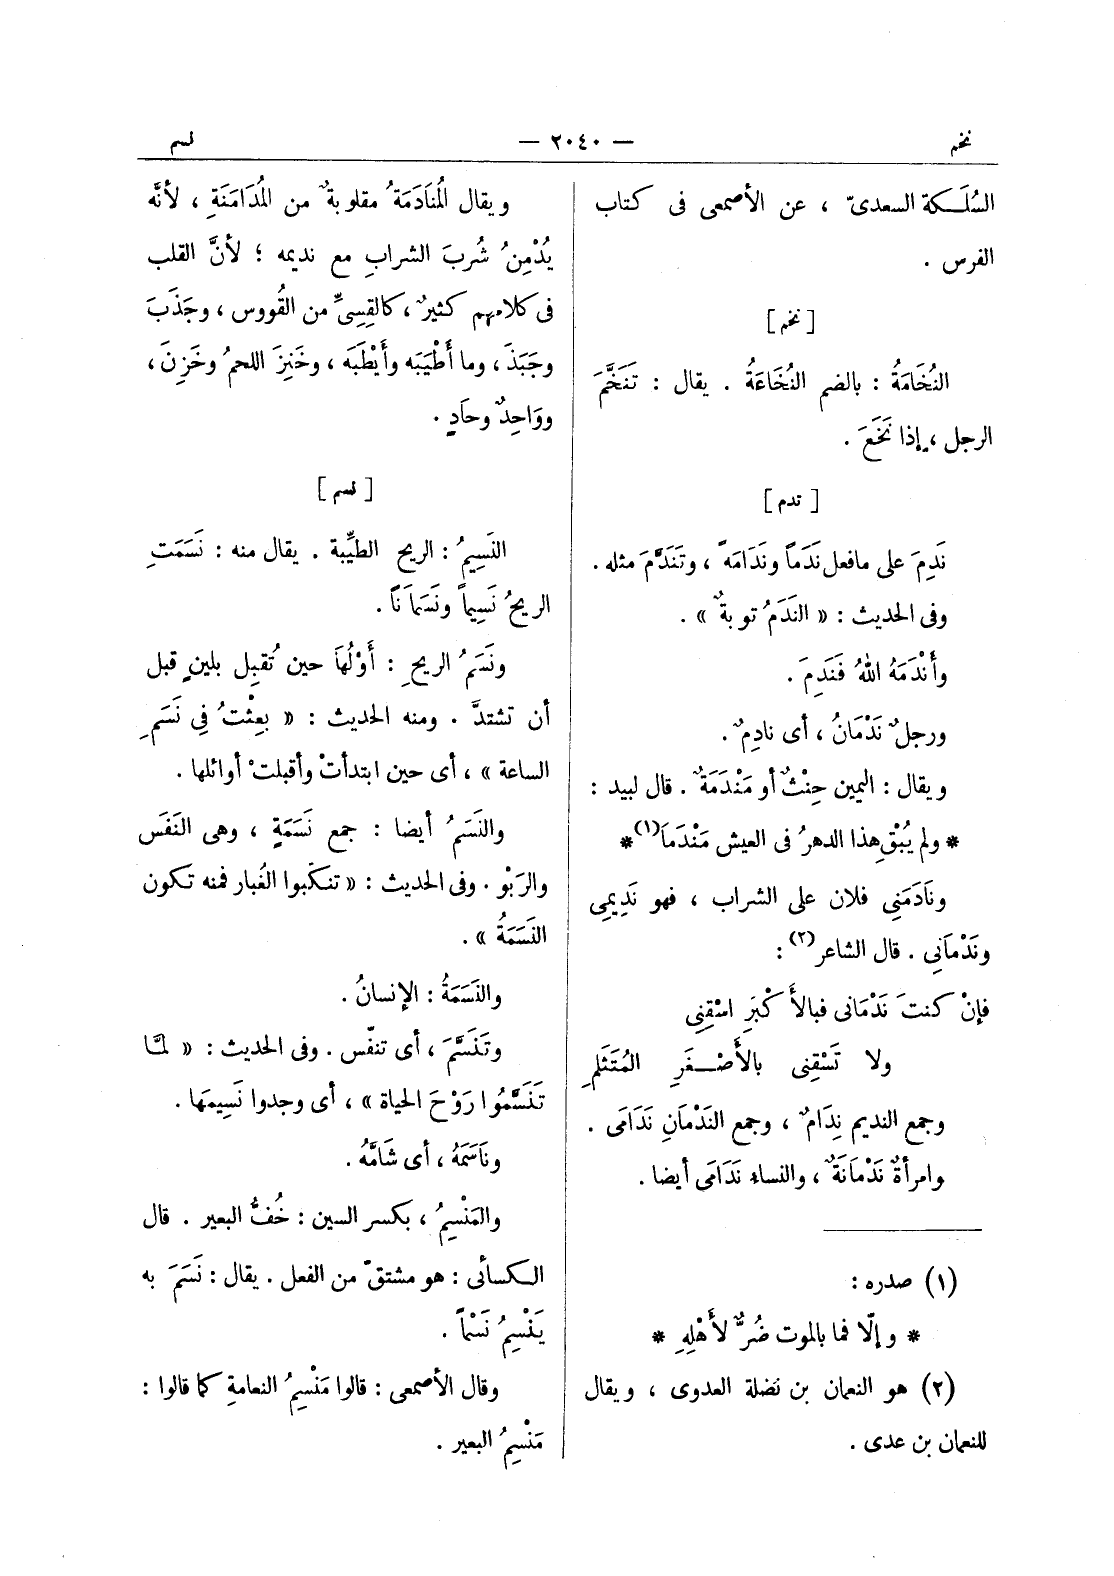 نخم
— ٢٠٤٠ —
نسم
السُلَـكة السعدىّ ، عن الأصمعى فى كتاب
الفرس .
[ نخم ]
النُخَامَةُ : بالضم النُخَاعَةُ . يقال : تَنَخَّمَ
الرجل ، إذا نَخَعَ .
[ ندم ]
نَدِمَ على مافعل نَدَماً ونَدَامَةً ، وتَنَدَّمَ مثله .
وفى الحديث : « النَدَمُ توبةٌ » .
وأَنْدَمَهُ اللهُ فَنَدِمَ .
ورجلٌ نَدْمَانُ ، أى نادِمٌ .
ويقال : اليمين حِنْثٌ أو مَنْدَمَةٌ . قال لبيد :
* ولم يُبْقِ هذا الدهرُ فى العيش مَنْدَمَا (١) *
ونَادَمَنِى فلان على الشراب ، فهو نَدِيمِى
ونَدْمَانِى . قال الشاعر (٢) :
فإنْ كنتَ نَدْمَانى فبالأَكْبَرِ اسْقِنِى
ولا تَسْقِنِى بالأَصْـغَرِ المُتَثَلِّمِ
وجمع النديم نِدَامٌ ، وجمع النَدْمَانِ نَدَامَى .
وامرأةٌ نَدْمَانَةٌ ، والنساء نَدَامَى أيضا .
(١) صدره :
* وإلّا فما بالموت ضُرٌّ لأَهْلِهِ *
(٢) هو النعمان بن نضلة العدوى ، ويقال
للنعمان بن عدى .
ويقال المُنَادَمَةُ مقلوبةٌ من المُدَامَنَةِ ، لأنَّه
يُدْمِنُ شُرْبَ الشرابِ مع نديمه ؛ لأنَّ القلب
فى كلامهم كثيرٌ ، كالقِسِىِّ من القُووس ، وجَذَبَ
وجَبَذَ ، وما أَطْيَبَه وأَيْطَبَه ، وخَنِزَ اللحمُ وخَزِنَ ،
ووَاحِدٌ وحَادٍ .
[ نسم ]
النَسِيمُ : الريح الطيِّبة . يقال منه : نَسَمَتِ
الريحُ نَسِيماً ونَسَمَاناً .
ونَسَمُ الريحِ : أَوّلُهَا حين تُقبِل بلينٍ قبل
أن تشتدَّ . ومنه الحديث : « بعِثْتُ فِى نَسَمِ
الساعة » ، أى حين ابتدأتْ وأقبلتْ أوائلها .
والنَسَمُ أيضا : جمع نَسَمَةٍ ، وهى النَفَس
والرَبْو . وفى الحديث : « تنكّبوا الغُبار فمنه تكون
النَسَمَةُ » .
والنَسَمَةُ : الإنسانُ .
وتَنَسَّمَ ، أى تنفّس . وفى الحديث : « لمَّا
تَنَسَّمُوا رَوْحَ الحياة » ، أى وجدوا نَسِيمَها .
ونَاسَمَهُ ، أى شَامَّهُ .
والمَنْسِمُ ، بكسر السين : خُفُّ البعير . قال
الـكسائى : هو مشتقّ من الفعل . يقال : نَسَمَ به
يَنْسِمُ نَسْماً .
وقال الأصمعى : قالوا مَنْسِمُ النعامةِ كما قالوا :
مَنْسِمُ البعير .